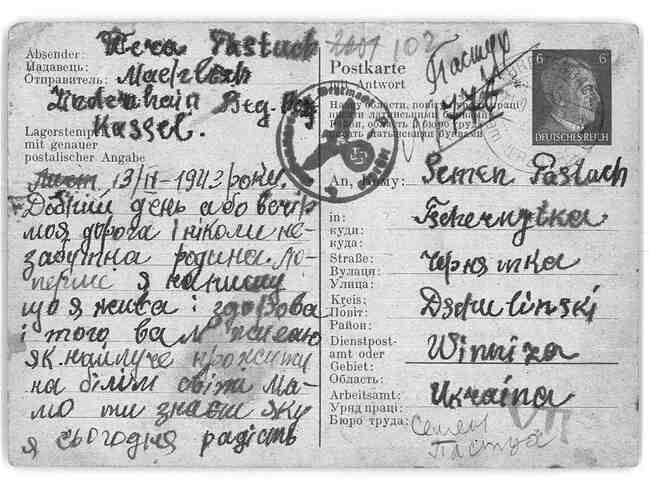 Absender:
Надавець:
Отправитель:
Wera Pastuch
Lindenhain Bez.
Kassel.
Lagerstempel
mit genauer
postalischer Angabe
Лист 13/II-1943 року.
Добрий день або вечір
моя дорога і ніколи не-
забутна родина. По-
перше я напишу
що я жива і здорова
і того вам желаю
як найлуче прожити
на білім світі ма-
мо ти знаєш яку
я сьогодня радість
2201 102
Postkarte
mit Antwort
Пастух
774
6 6
DEUTSCHES REICH
An, Кому: Semen Pastuch
in: Tschernytka
куди:
куда:
Straße: Чернятка
Вулиця:
Улица:
Kreis: Dschulinski
Повіт:
Район:
Dienstpost-
amt oder Winniza
Gebiet:
Область:
Arbeitsamt: Ukraina
Уряд праці:
Бюро труда: Семен
Пастух
VII